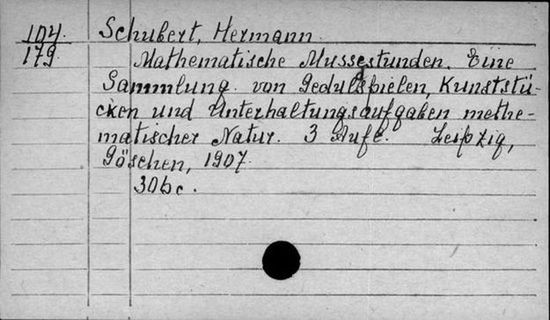 104. Schubert, Hermann
179. Mathematische Mussestunden. Eine
Sammlung von Gedulspielen, Kunststü-
cken und Unterhaltungsaufgaben methe-
matischer Natur. 3 Aufl. Leipzig,
Göschen, 1907.
306 c.